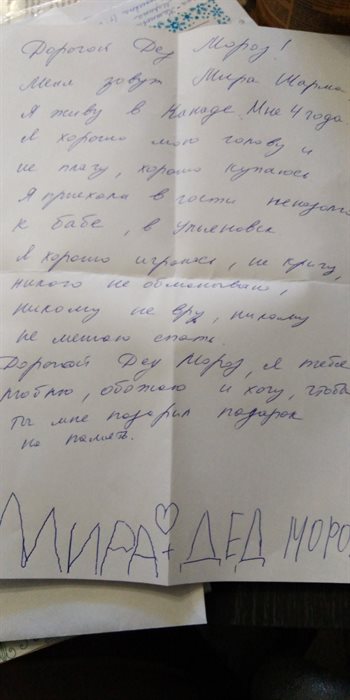 Дорогой Дед Мороз!
Меня зовут Мира Шарма.
Я живу в Канаде. Мне 4 года
Я хорошо мою голову и
не плачу, хорошо купаюсь
Я приехала в гости ненадолго
к бабе, в Ульяновск
Я хорошо играюсь, не кричу,
никого не обманываю,
никому не вру, никому
не мешаю спать.
Дорогой Дед Мороз, я тебя
люблю, обожаю и хочу, чтобы
ты мне подарил подарок
на память.
МИРА + ДЕД МОРОЗ